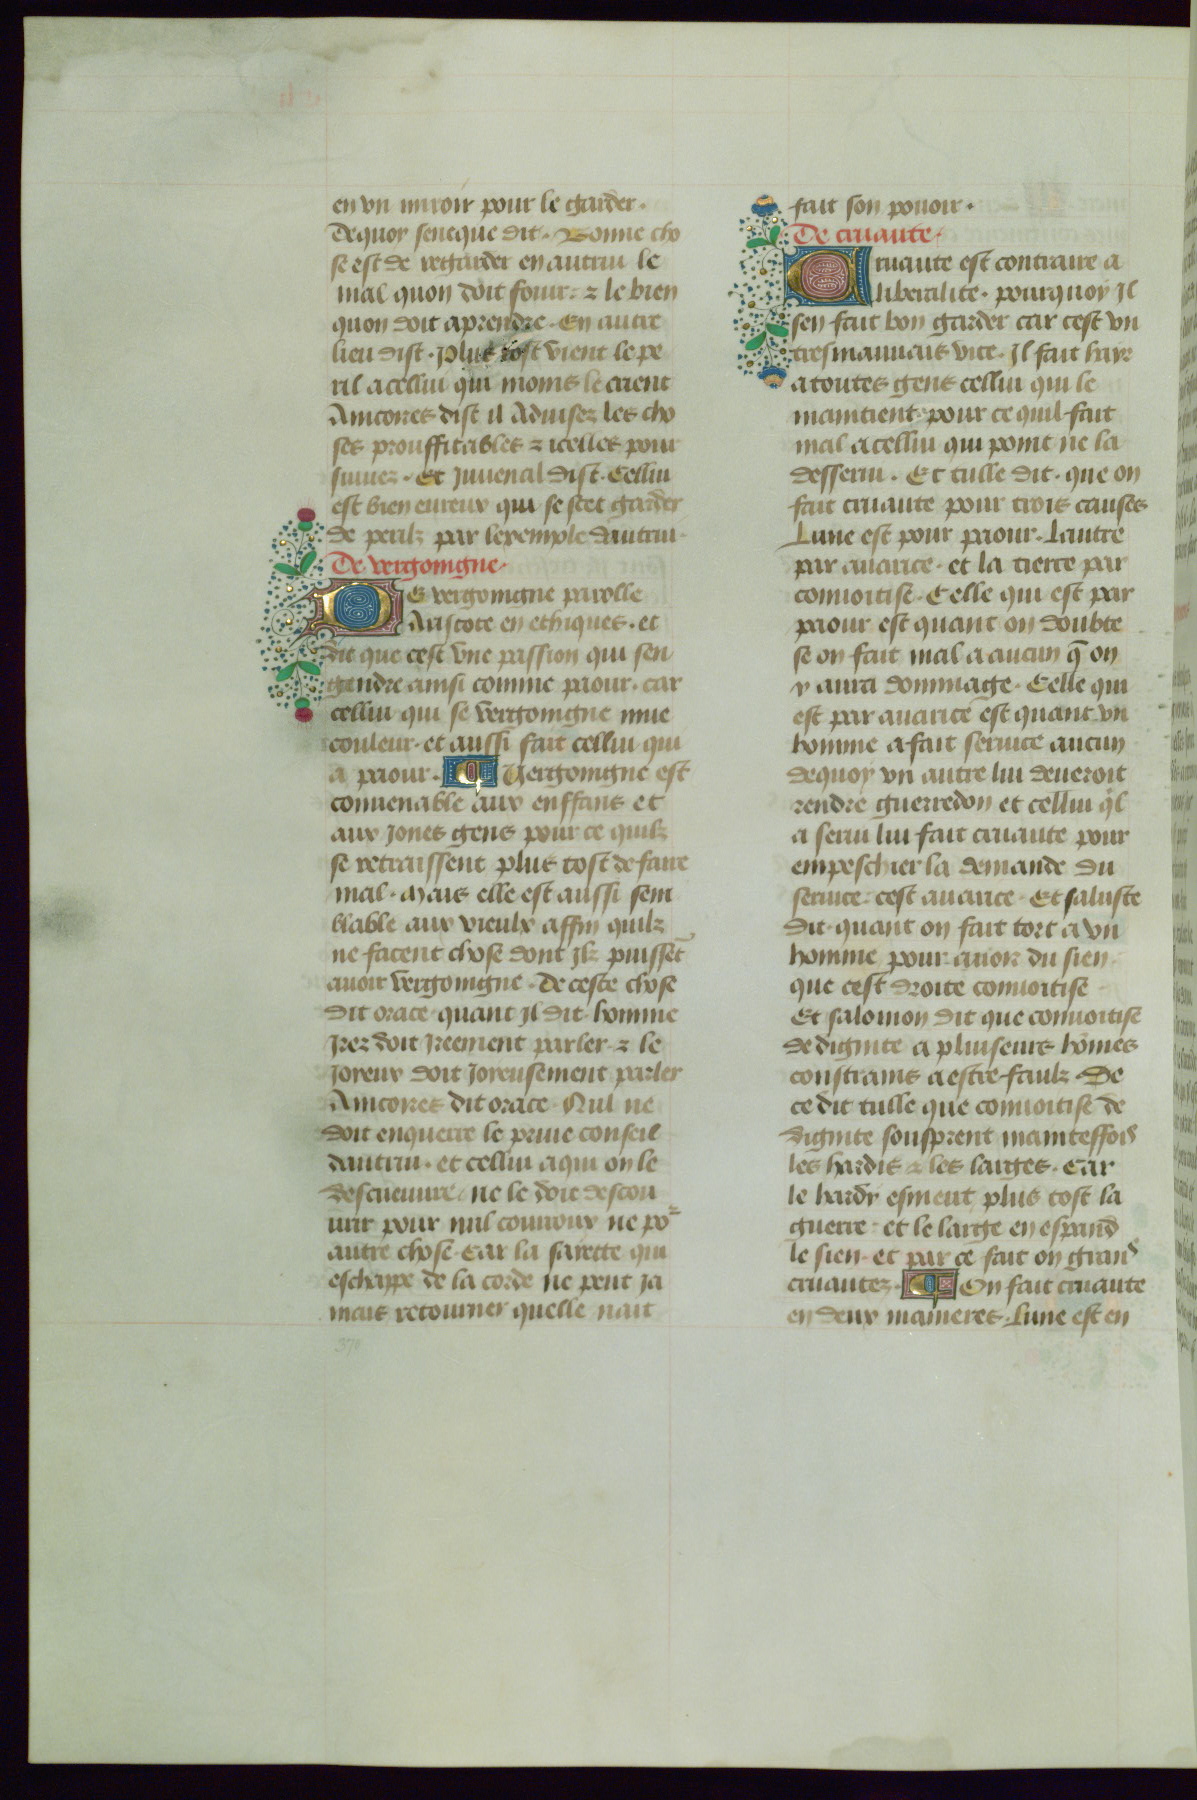 en vn miroir pour le garder.
Dequoy seneque dit. Bonne cho
se est de regarder en autrui le
mal quon doit fouir. ⁊ le bien
quon doit aprendre. En autre
lieu dist. Plus tost vient le pe
ril a cellui qui moins le crient
Aincores dist il Aduisez les cho
ses prouffitables ⁊ icelles pour
suiuez. Et Juuenal dist. Cellui
est bien eureux qui se scet garder
de perilz par lexemple dautrui.
De vergoingne.
De vergoingne parolle
Aristote en ethiques. et
dit que cest vne passion qui sen
gendre ainsi comme paour. car
cellui qui se vergoingne mue
couleur. et aussi fait cellui qui
a paour. Vergoingne est
conuenable aux enffans et
aux Jones gens pour ce quilz
se retraissent plus tost de faire
mal. Mais elle est aussi sem
blable aux vieulx affin quilz
ne facent chose dont Jlz puissẽt
auoir vergoingne. De ceste chose
dit orace quant Jl dit. homme
Jrez doit Jreement parler. ⁊ le
Joyeux doit Joyeusement parler
Aincores dit orace. Nul ne
doit enquerre le priue conseil
dautrui. et cellui a qui on le
descueuure. ne le doit descou
urir pour nul courroux ne po²
autre chose. Car la sarette qui
eschappe de la corde ne peut Ja
mais retourner quelle nait
370
fait son pouoir.
De cruaute.
Cruaute est contraire a
liberalite. pourquoy Jl
sen fait bon garder car cest vn
tresmauuais vice. Jl fait hayr
a toutes gens cellui qui le
maintient pour ce quil fait
mal a cellui qui point ne la
desserui. Et tulle dit. que on
fait cruaute pour trois causes
Lune est pour paour. Lautre
par auarice. et la tierce par
conuoitise. Celle qui est par
paour est quant on doubte
se on fait mal a aucun q̃ on
y aura dommage. Celle qui
est par auarice est quant vn
homme a fait seruice aucun
dequoy vn autre lui deueroit
rendre guerredon et cellui q̃l
a serui lui fait cruaute pour
empeschier la demande du
seruice. cest auarice. Et saluste
dit. quant on fait tort a vn
homme pour auoir du sien
que cest droite conuoitise
Et salomon dit que conuoitise
de dignite a pluiseurs hõmes
constrains a estre faulz. De
ce dit tulle que conuoitise de
dignite sousprent mainteffois
les hardis ⁊ les larges. Car
le hardy esmeut plus tost la
guerre. et le large en espand
le sien. et par ce fait on grans
cruautez. On fait cruaute
en deux manieres. Lune est en